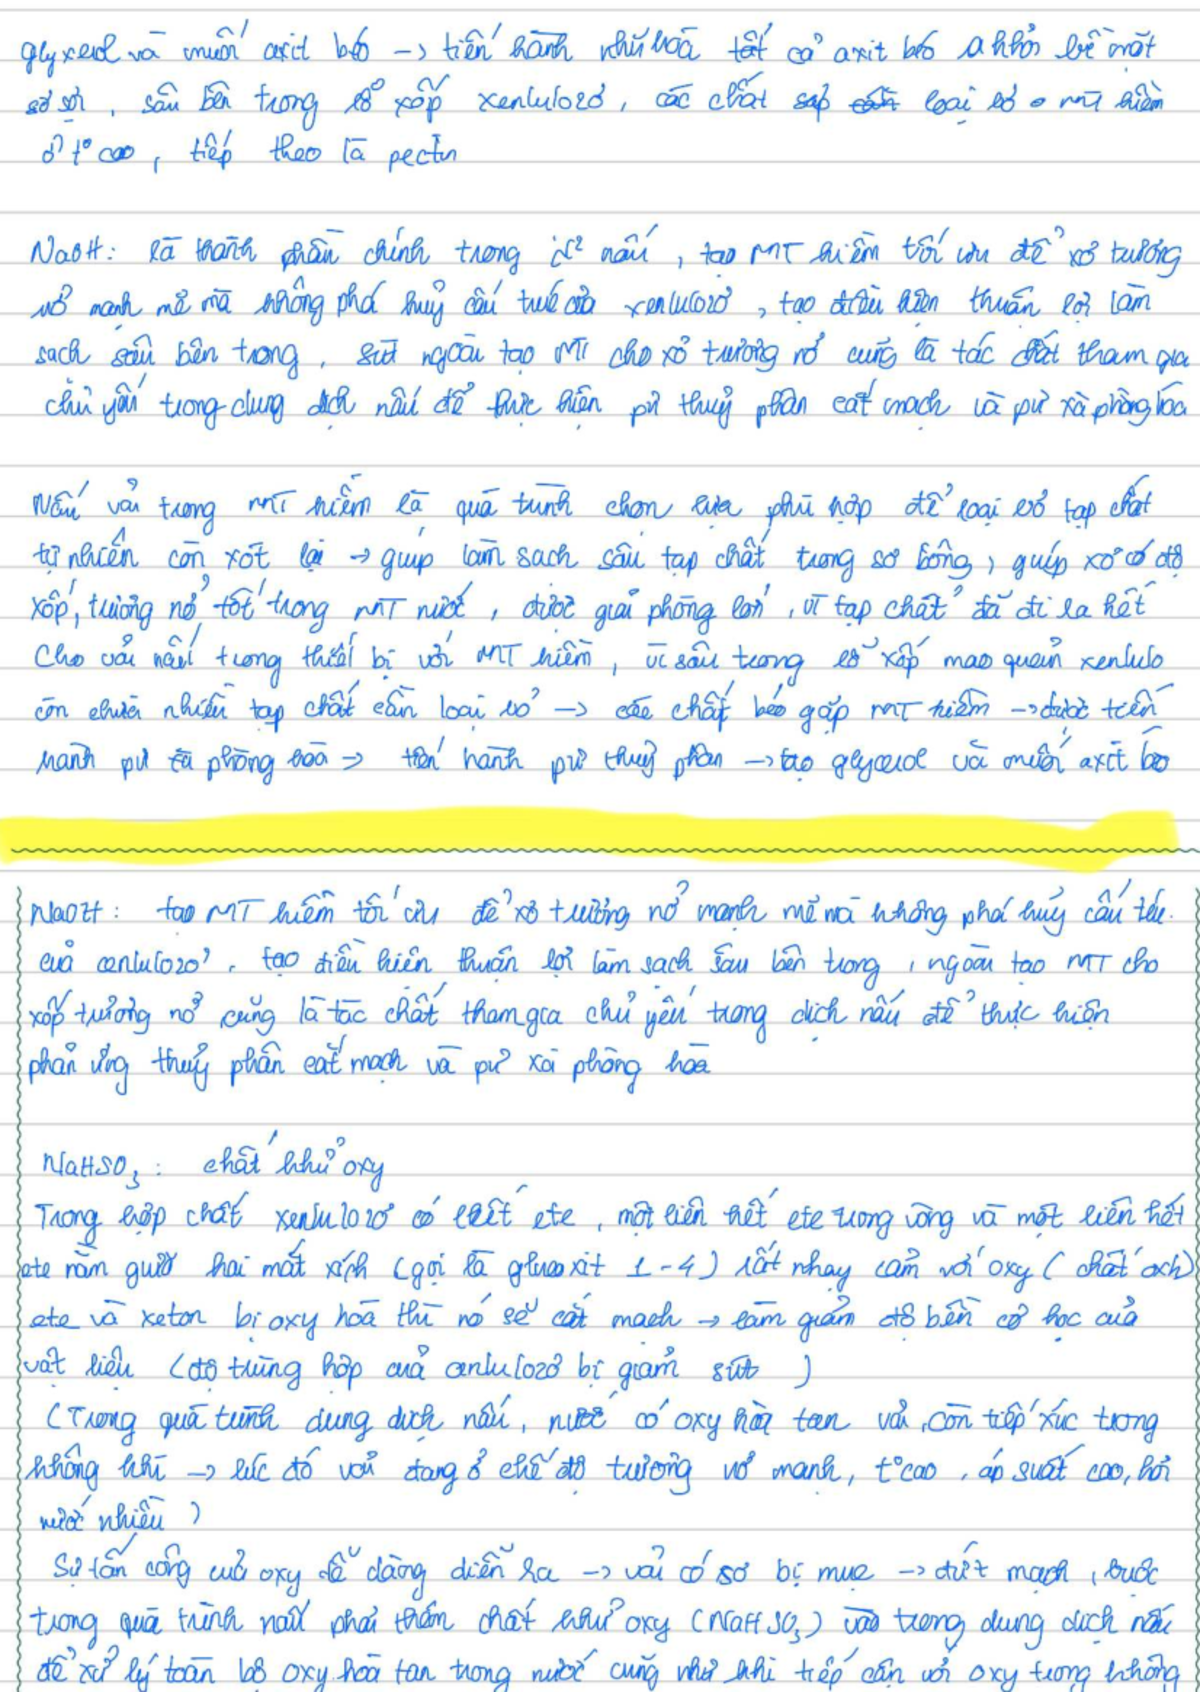 glyxerol và muối axit béo → tiến hành nhũ hoá tất cả axit béo ra khỏi bề mặt
sơ sợi, sâu bên trong lỗ xốp xenlulozơ, các chất sáp loại bỏ = mt kiềm
ở t° cao, tiếp theo là pectin
NaOH: là thành phần chính trong d² nấu, tạo MT kiềm tối ưu để xơ trương
nở mạnh mẽ mà không phá huỷ cấu trúc của xenlulozơ, tạo điều kiện thuận lợi làm
sạch sâu bên trong, ngoài tạo MT cho xơ trương nở cũng là tác chất tham gia
chủ yếu trong dung dịch nấu để thực hiện pứ thuỷ phân cắt mạch và pứ xà phòng hóa
Nấu vải trong MT kiềm là quá trình chọn lựa phù hợp để loại bỏ tạp chất
tự nhiên còn xót lại → giúp làm sạch sâu tạp chất trong sơ bông, giúp xơ có độ
xốp, trương nở tốt trong MT nước, được giải phóng lớn, vì tạp chất đã đi ra hết
Cho vải nấu trong thiết bị với MT kiềm, vì sâu trong lỗ xốp mao quản xenlulo
còn chứa nhiều tạp chất cần loại bỏ → các chất béo gặp MT kiềm → được tiến
hành pứ xà phòng hoá → tiến hành pứ thuỷ phân → tạo glycerol và muối axit béo
NaOH: tạo MT kiềm tối ưu để xơ trương nở mạnh mẽ mà không phá hủy cấu trúc
của cenlulozơ, tạo điều kiện thuận lợi làm sạch sâu bên trong, ngoài tạo MT cho
xốp trương nở cũng là tác chất tham gia chủ yếu trong dịch nấu để thực hiện
phản ứng thuỷ phân cắt mạch và pứ xà phòng hóa
NaHSO₃: chất khử oxy
Trong hợp chất xenlulozơ có ete, một liên kết ete trong vòng và một liên kết
ete nằm giữa hai mắt xích (gọi là glucoxit 1-4) rất nhạy cảm với oxy (chất oxh)
ete và xeton bị oxy hóa thì nó sẽ cắt mạch → làm giảm độ bền cơ học của
vật liệu (độ trùng hợp cuả cenlulozơ bị giảm sút)
(Trong quá trình dung dịch nấu, nước có oxy hòa tan vải, còn tiếp xúc trong
không khí → lúc đó vải đang ở chế độ trương nở mạnh, t° cao, áp suất cao, hơi
nước nhiều)
Sự tấn công cuả oxy dễ dàng diễn ra → vải có sơ bị mục → đứt mạch, buộc
trong quá trình nấu phải thêm chất khử oxy (NaHSO₃) vào trong dung dịch nấu
để xử lý toàn bộ oxy hoà tan trong nước cũng như khi tiếp cận với oxy trong không